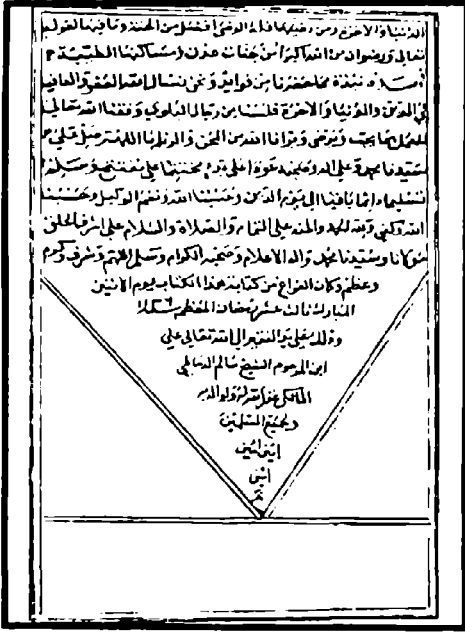 الدنيا والآخرة ومن رضي فله الرضى افضل من الجنة وما فيها لقوله
تعالى ورضوان من الله اكبر من جنات عدن ومساكنها الطيبة
نبذة مما حضرنا من فوايد ونحن نسال الله العفو والعافية
في الدين والدنيا والآخرة فلسنا من رجال البلوى وفقنا الله تعالى
للعمل بما يحب ويرضى من المحن اللهم صل على
سيدنا محمد وعلى اله وصحبه
تسليما دايما باقيا الى يوم الدين وحسبنا الله ونعم الوكيل وحسبنا
الله وكفى ولله الحمد والمنة على التمام والصلاة والسلام على اشرف الخلق
مولانا وسيدنا محمد واله الاعلام وصحبه الكرام وسلم وشرف وكرم
وعظم وكان الفراغ من كتابة هذا الكتاب يوم الاثنين
المبارك ثالث عشر رمضان المعظم سنة
وذلك على يد الفقير الى الله تعالى علي
ابن المرحوم الشيخ سالم
المالكي غفر الله له ولوالديه
ولجميع المسلمين
امين امين
امين
تم